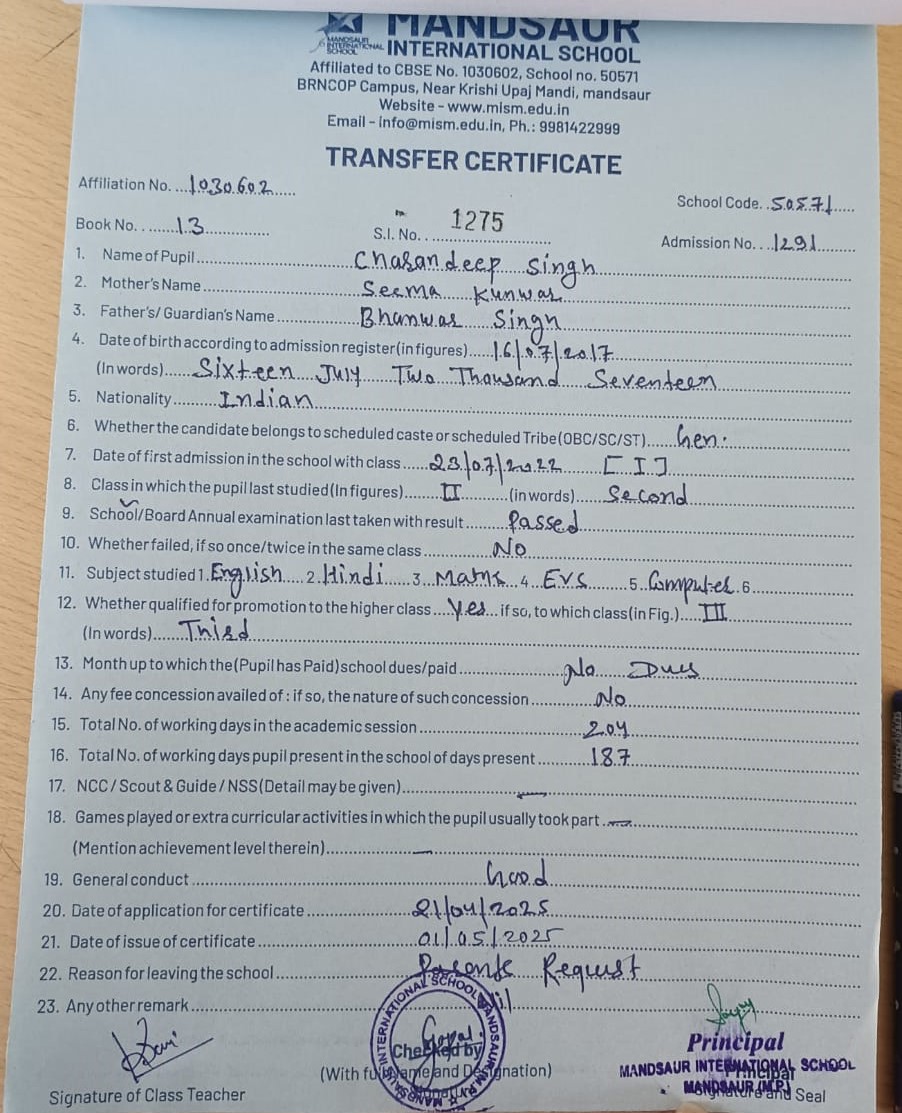 MANDSAUR
MANDSAUR INTERNATIONAL SCHOOL
INTERNATIONAL SCHOOL
Affiliated to CBSE No. 1030602, School no. 50571
BRNCOP Campus, Near Krishi Upaj Mandi, mandsaur
Website - www.mism.edu.in
Email - info@mism.edu.in, Ph.: 9981422999
TRANSFER CERTIFICATE
Affiliation No. ...1030602...... School Code. .50571.....
Book No. .......13............... S.I. No. . 1275 Admission No. ..1291.......
1. Name of Pupil..........Chasandeep Singh
2. Mother's Name..........Seema Kunwar
3. Father's/ Guardian's Name..........Bhanwar Singh
4. Date of birth according to admission register(in figures).....16/07/2017
(In words).....Sixteen July Two Thousand Seventeen
5. Nationality.........Indian
6. Whether the candidate belongs to scheduled caste or scheduled Tribe(OBC/SC/ST)......Gen.
7. Date of first admission in the school with class.....23/07/2022 [I]
8. Class in which the pupil last studied(In figures)........II..........(in words).....Second
9. School/Board Annual examination last taken with result.........Passed
10. Whether failed, if so once/twice in the same class..........No
11. Subject studied 1.English....2.Hindi.....3..Maths..4..EVS........5..Computer.6...........
12. Whether qualified for promotion to the higher class...Yes...if so, to which class(in Fig.).....III
(In words).....Third
13. Month up to which the(Pupil has Paid)school dues/paid..........No Dues
14. Any fee concession availed of : if so, the nature of such concession..........No
15. Total No. of working days in the academic session..........204
16. Total No. of working days pupil present in the school of days present..........187
17. NCC / Scout & Guide / NSS(Detail may be given)..........—
18. Games played or extra curricular activities in which the pupil usually took part..—
(Mention achievement level therein)..........—
19. General conduct..........Good
20. Date of application for certificate..........21/04/2025
21. Date of issue of certificate..........01/05/2025
22. Reason for leaving the school..........Parents Request
23. Any other remark..........Nil
INTERNATIONAL SCHOOL MANDSAUR (M.P.)
Checked by
(With full Name and Designation)
Signature of Class Teacher
Principal
MANDSAUR INTERNATIONAL SCHOOL
MANDSAUR (M.P.)
Principal
Signature and Seal